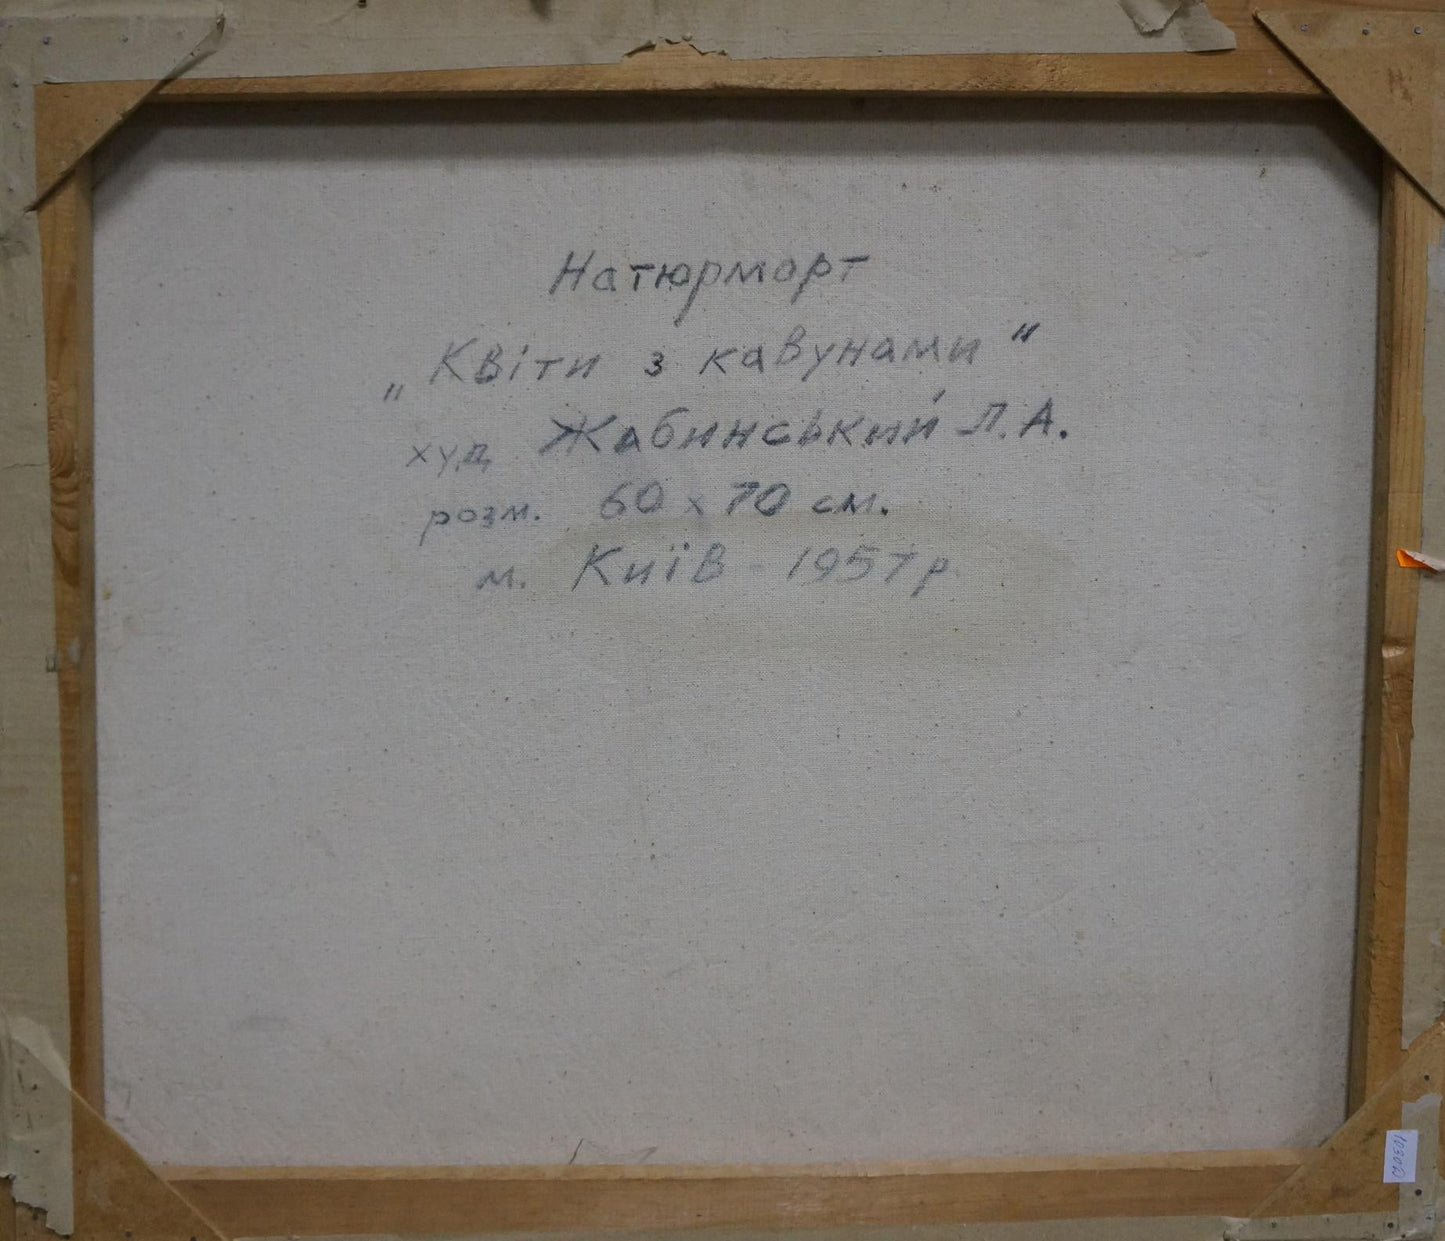 Натюрморт
„Квіти з кавунами"
худ Жабинський Л.А.
розм. 60 x 70 см.
м. Київ - 1957 р